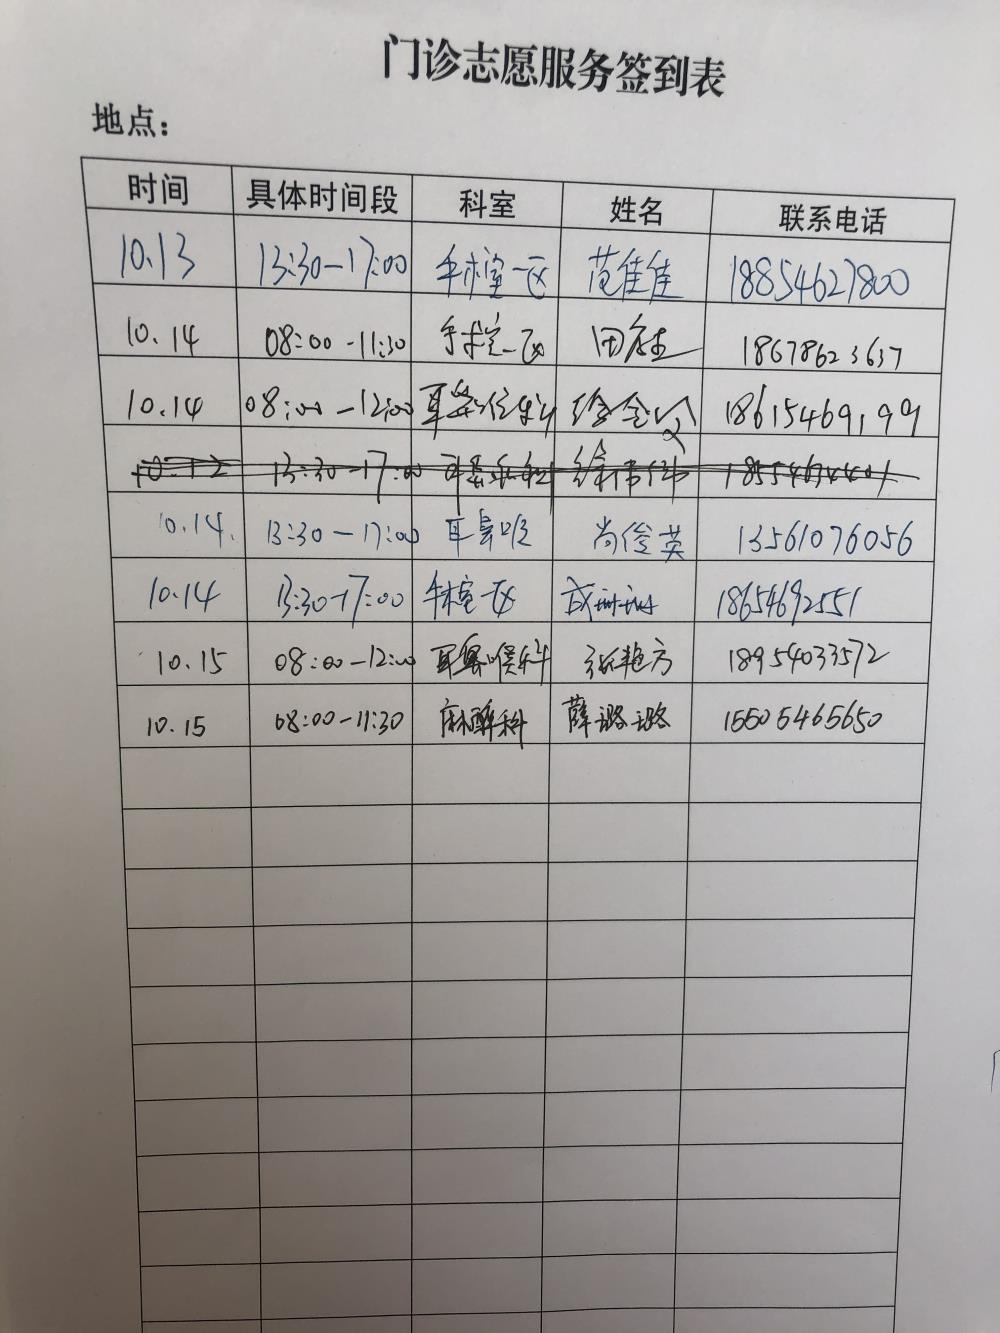 门诊志愿服务签到表
地点：
时间 具体时间段 科室 姓名 联系电话
10.13 13:30-17:00 手术室一区 范佳佳 18854627800
10.14 08:00-11:30 手术室一区 田 18678623637
10.14 08:00-12:00 耳鼻喉科 徐金 18615469199
10.12 13:30-17:00 徐 18554674401
10.14. 13:30-17:00 耳鼻喉 尚俊英 13561076056
10.14 13:30-17:00 手术室一区 成琳琳 18654692551
10.15 08:00-12:00 耳鼻喉科 张艳方 18954033572
10.15 08:00-11:30 麻醉科 薛璐璐 15505465650